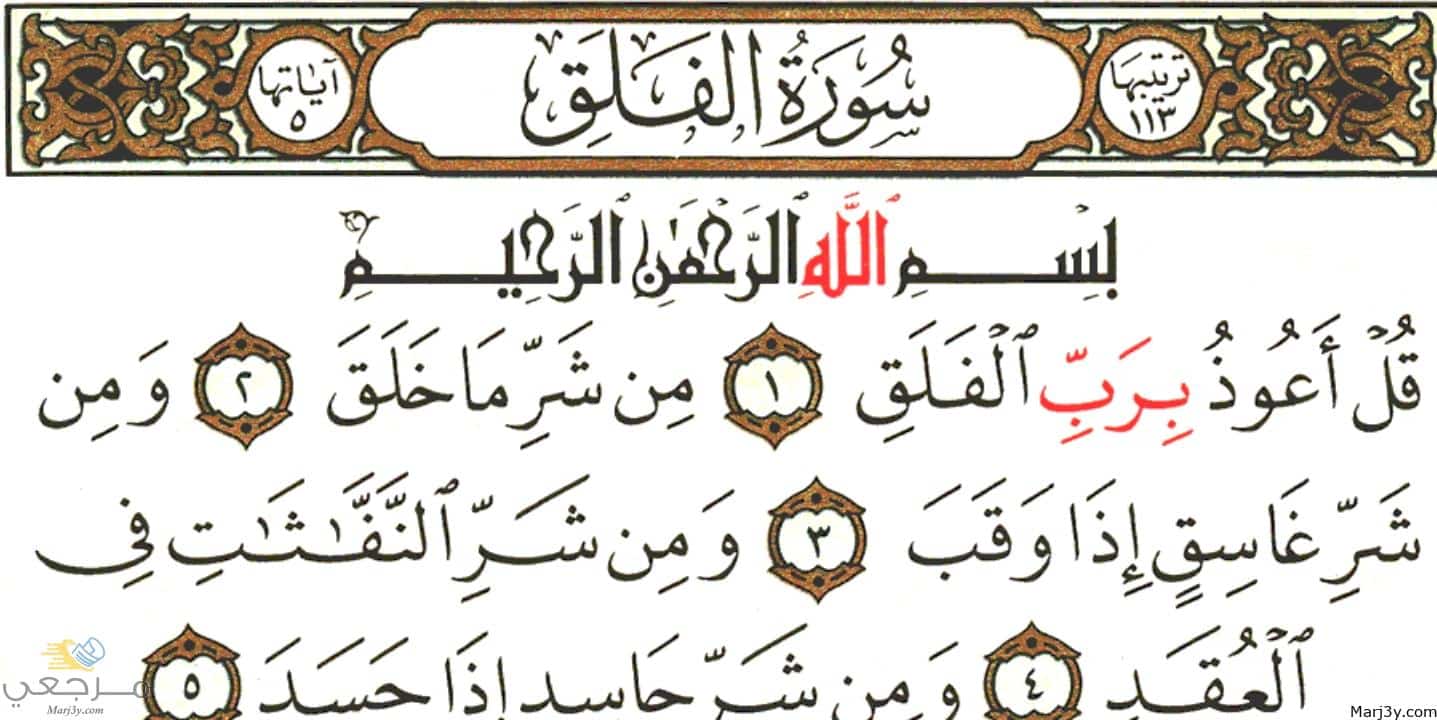 ترتيبها
١١٣
سُورَةُ الفَلَقِ
آيَاتها
٥
بِسْمِ ٱللَّهِ ٱلرَّحْمَٰنِ ٱلرَّحِيمِ
قُلْ أَعُوذُ بِرَبِّ ٱلْفَلَقِ ١ مِن شَرِّ مَا خَلَقَ ٢ وَمِن
شَرِّ غَاسِقٍ إِذَا وَقَبَ ٣ وَمِن شَرِّ ٱلنَّفَّـٰثَـٰتِ فِى
ٱلْعُقَدِ ٤ وَمِن شَرِّ حَاسِدٍ إِذَا حَسَدَ ٥
مرجعي
Marj3y.com
Marj3y.com